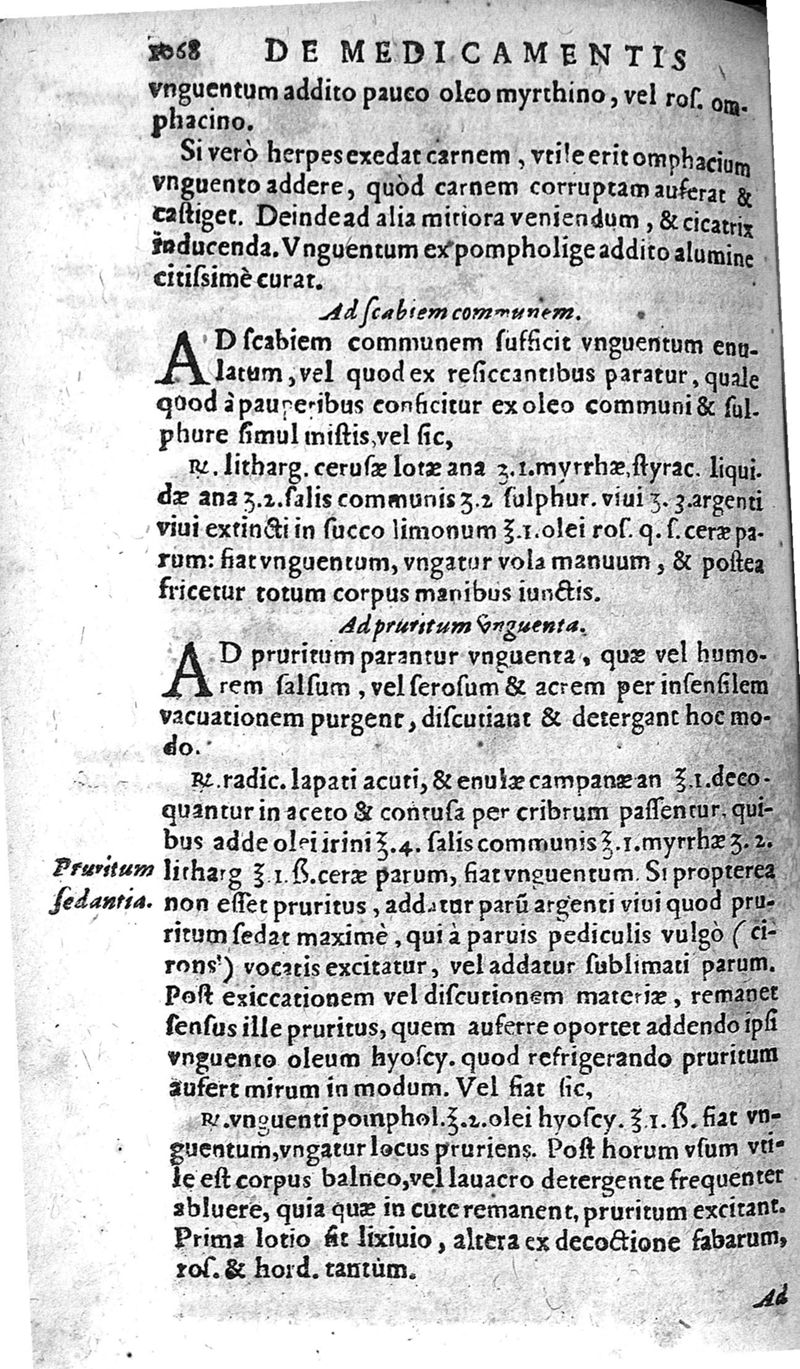 1068 DE MEDICAMENTIS
vnguentum addito pauco oleo myrthino, vel roſ. om-
phacino.
Si verò herpes exedat carnem, vtile erit omphacium
vnguento addere, quòd carnem corruptam auferat &
caſtiget. Deinde ad alia mitiora veniendum, & cicatrix
inducenda. Vnguentum ex pompholige addito alumine
citiſsimè curat.
Ad ſcabiem communem.
AD ſcabiem communem ſufficit vnguentum enu-
latum, vel quod ex reſiccantibus paratur, quale
quod à pauperibus conficitur ex oleo communi & ſul-
phure ſimul miſtis, vel ſic,
℞. litharg. ceruſæ lotæ ana ʒ.1. myrrhæ, ſtyrac. liqui-
dæ ana ʒ.2. ſalis communis ʒ.2 ſulphur. viui ʒ. 3. argenti
viui extincti in ſucco limonum ℥.1. olei roſ. q. ſ. ceræ pa-
rum: fiat vnguentum, vngatur vola manuum, & poſtea
fricetur totum corpus manibus iunctis.
Ad pruritum vnguenta.
AD pruritum parantur vnguenta, quæ vel humo-
rem ſalſum, vel ſeroſum & acrem per inſenſilem
vacuationem purgent, diſcutiant & detergant hoc mo-
do.
℞. radic. lapati acuti, & enulæ campanæ an ℥.1. deco-
quantur in aceto & contuſa per cribrum paſſentur, qui-
bus adde olei irini ℥.4. ſalis communis ℥.1. myrrhæ ʒ. 2.
Pruritum litharg ℥.1. ß. ceræ parum, fiat vnguentum. Si propterea
ſedantia. non eſſet pruritus, addatur parū argenti viui quod pru-
ritum ſedat maximè, qui à paruis pediculis vulgò (ci-
rons') vocatis excitatur, vel addatur ſublimati parum.
Poſt exiccationem vel diſcutionem materiæ, remanet
ſenſus ille pruritus, quem auferre oportet addendo ipſi
vnguento oleum hyoſcy. quod refrigerando pruritum
aufert mirum in modum. Vel fiat ſic,
℞. vnguenti pomphol. ℥.2. olei hyoſcy. ℥.1. ß. fiat vn-
guentum, vngatur locus pruriens. Poſt horum vſum vti-
le eſt corpus balneo, vel lauacro detergente frequenter
abluere, quia quæ in cute remanent, pruritum excitant.
Prima lotio ſit lixiuio, altera ex decoctione fabarum,
roſ. & hord. tantùm.
Ad